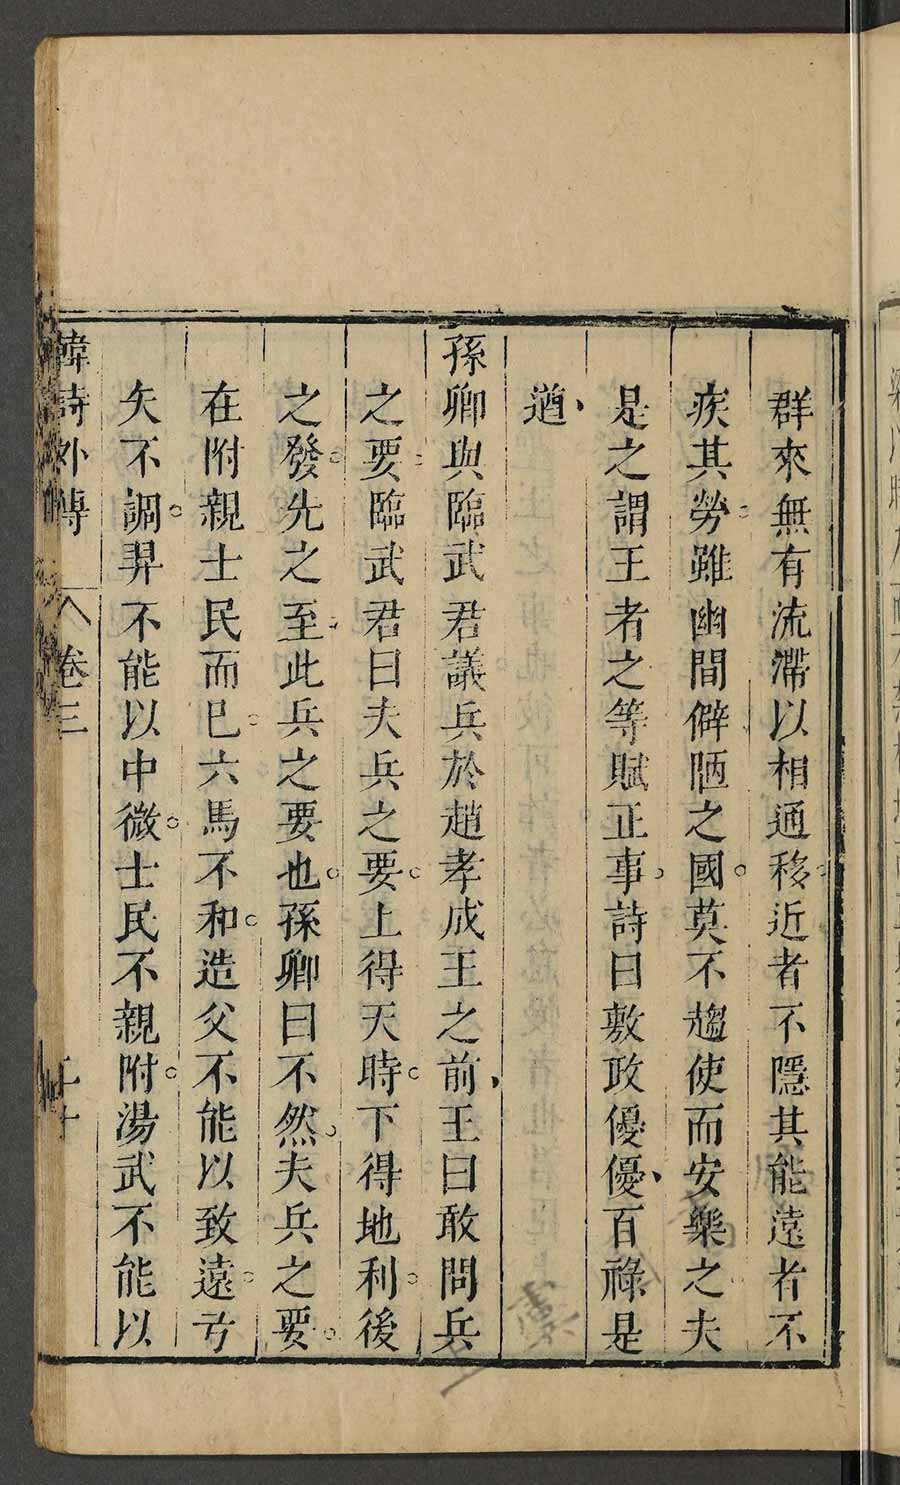 群來無有流滯以相通移近者不隱其能遠者不
疾其勞雖幽間僻陋之國莫不趨使而安樂之夫
是之謂王者之等賦正事詩曰敷政優優百祿是
遒
孫卿與臨武君議兵於趙孝成王之前王曰敢問兵
之要臨武君曰夫兵之要上得天時下得地利後
之發先之至此兵之要也孫卿曰不然夫兵之要
在附親士民而已六馬不和造父不能以致遠弓
矢不調羿不能以中微士民不親附湯武不能以
韓詩外傳 卷三